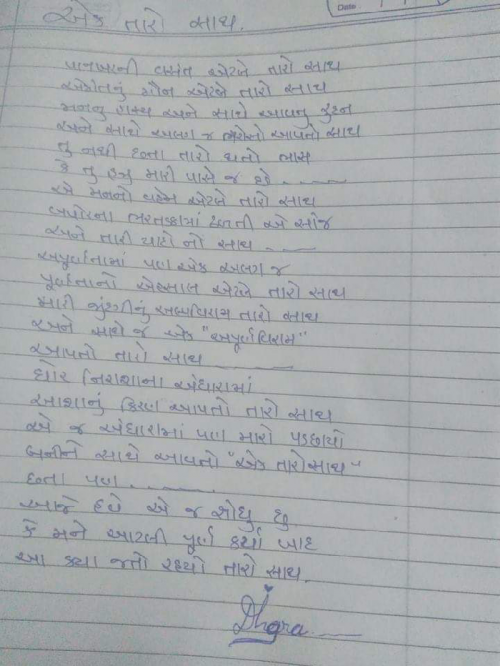 એક તારો સાથ.
Date
પાનખરની વસંત એટલે તારો સાથ
એકાંતનું મૌન એટલે તારો સાથ
મનનુ હાસ્ય અને સાથે આવતુ રુદન
અને સાથે અલગ જ ભરોસો આપતો સાથ
તુ નથી છતા તારો થતો ભાસ
કે તુ હજુ મારી પાસે જ છે
એ મનનો વહેમ એટલે તારો સાથ
બપોરના ભરતડકામાં ઢળતી એ સાંજ
અને તારી યાદો નો સાથ
અપૂર્ણતામાં પણ એક અલગ જ
પૂર્ણતાનો એહસાસ એટલે તારો સાથ
મારી જીંદગીનું અલ્પવિરામ તારો સાથ
અને સાથે જ એક "અપૂર્ણવિરામ"
આપતો તારો સાથ
ઘોર નિરાશાના અંધારામાં
આશાનું કિરણ આપતો તારો સાથ
એ જ અંધારામાં પણ મારો પડછાયો
બનીને સાથે આવતો "એક તારો સાથ"
છતા પણ
આજે હવે એ જ શોધુ છુ
કે મને આટલી પૂર્ણ કર્યા બાદ
આ ક્યા જતો રહ્યો તારો સાથ.
Dhara